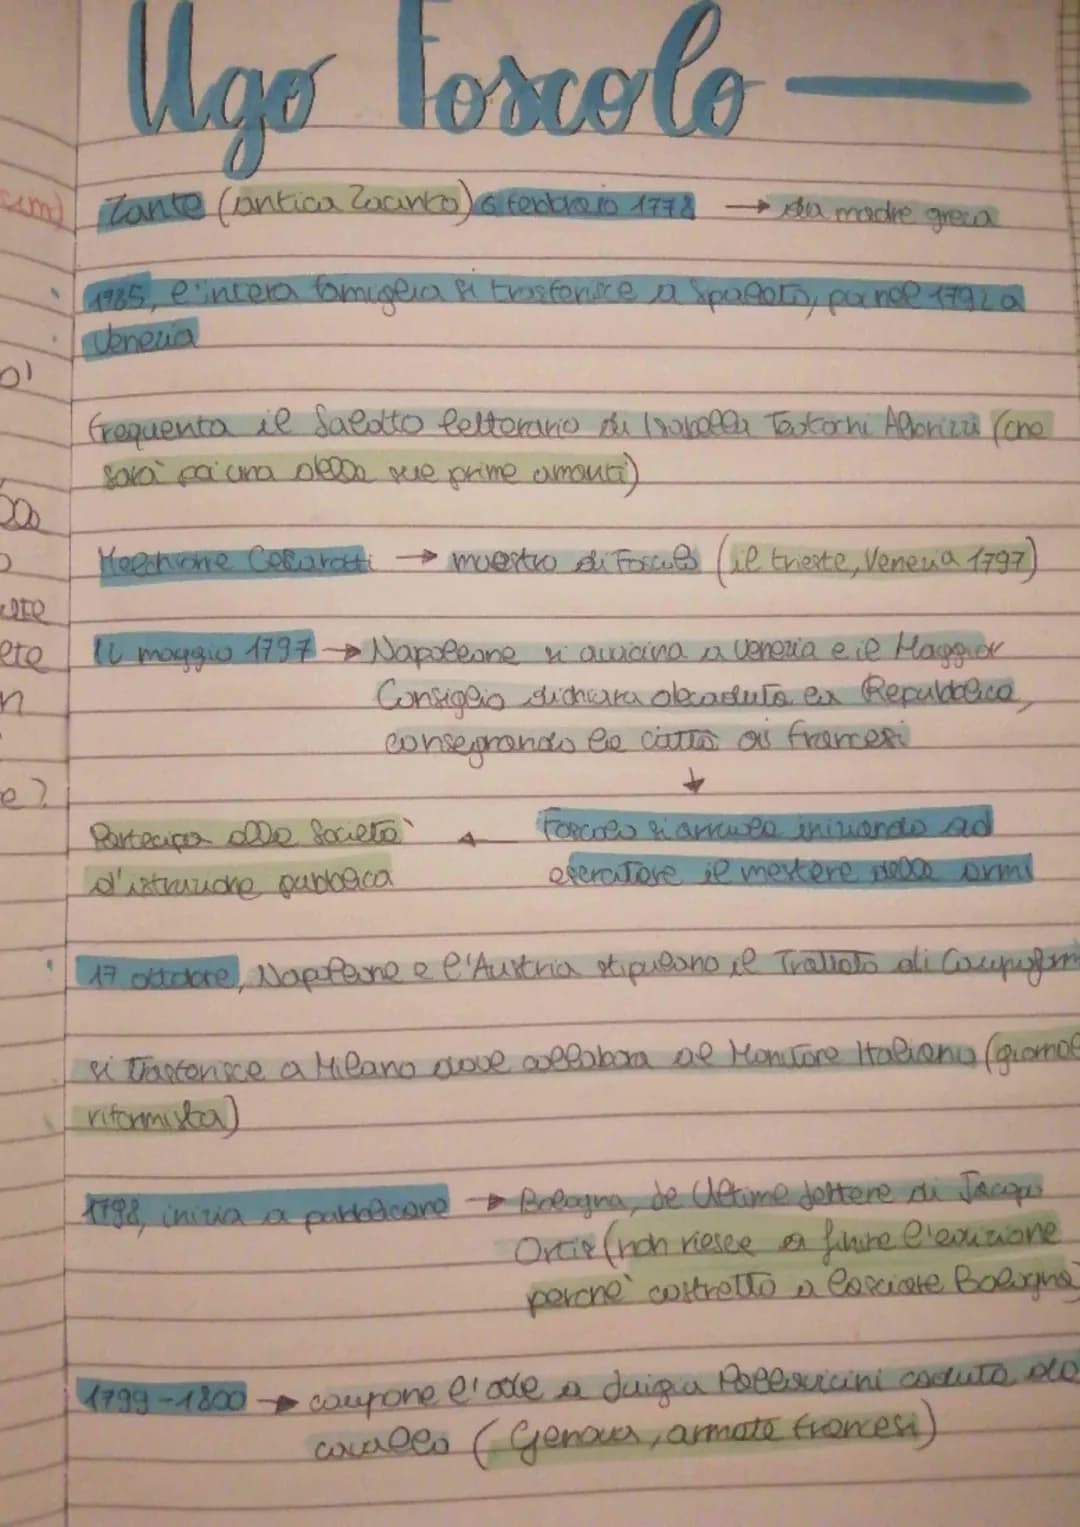 Ugo Foscolo
Zante (antica Zacinto) 6 febbraio 1778 → da madre greca
1985, l'intera famiglia si trasferisce a Spalato, poi nel 1792 a
Venezia
frequenta il salotto letterario di Isabella Teotochi Albrizzi (che
sarà poi una delle sue prime amanti)
Melchiorre Cesarotti → maestro di Foscolo (il trieste, Venezia 1797)
maggio 1797 → Napoleone si avvicina a Venezia e il Maggior
Consiglio dichiara decaduta la Repubblica,
consegnando le città ai francesi
↓
Foscolo si arruola iniziando ad
esercitare il mestiere delle armi
←
Partecipa alla Società
d'istruzione pubblica
17 ottobre, Napoleone e l'Austria stipulano il Trattato di Campoform
si trasferisce a Milano dove collabora al Monitore Italiano (giornal
riformista)
1798, inizia a pubblicare → Bologna, le Ultime lettere di Jacopo
Ortis (non riesce a finire l'edizione
perchè costretto a lasciare Bologna)
1799-1800 → compone l'ode a Luigia Pallavicini caduta da
cavallo (Genova, armate francesi)